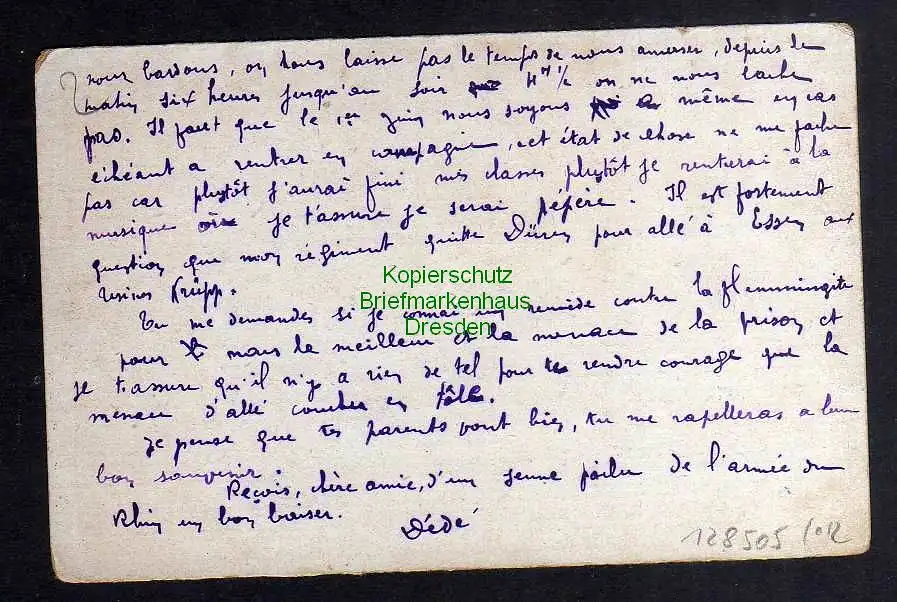 nous bardons, on nous laisse pas le temps de nous amuser, depuis le
matin six heures jusqu'au soir 4h 1/2 on ne nous lache
pas. Il faut que le 1er juin nous soyons même en cas
échéant a rentrer en campagne, cet état de chose ne me fache
pas car plutôt j'aurai fini mes classes plutôt je rentrerai à la
musique et je t'assure je serai pépère. Il est fortement
question que mon régiment quitte Düren pour allé à Essen aux
usines Krüpp.
Tu me demandes si je connai un remède contre la flemmingite
pour mais le meilleur et la menace de la prison et
je t'assure qu'il n'y a rien de tel pour te rendre courage que la
menace d'allé coucher en tôle.
Je pense que tes parents vont bien, tu me rapelleras a leur
bon souvenir.
Reçois, chère amie, d'un jeune poilu de l'armée du
Rhin un bon baiser.
Dédé
128505 /012
Kopierschutz
Briefmarkenhaus
Dresden